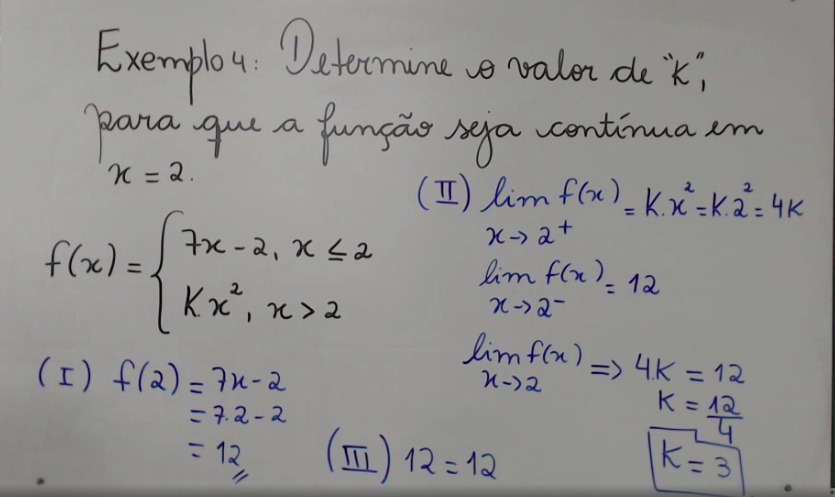 Exemplo 4: Determine o valor de "K",
para que a função seja contínua em
x = 2.
f(x) = { 7x - 2, x ≤ 2
K.x², x > 2
(I) f(2) = 7x - 2
= 7.2 - 2
= 12
(II) lim f(x) = K.x² = K.2² = 4K
x → 2⁺
lim f(x) = 12
x → 2⁻
lim f(x) => 4K = 12
x → 2
K = 12
4
K = 3
(III) 12 = 12